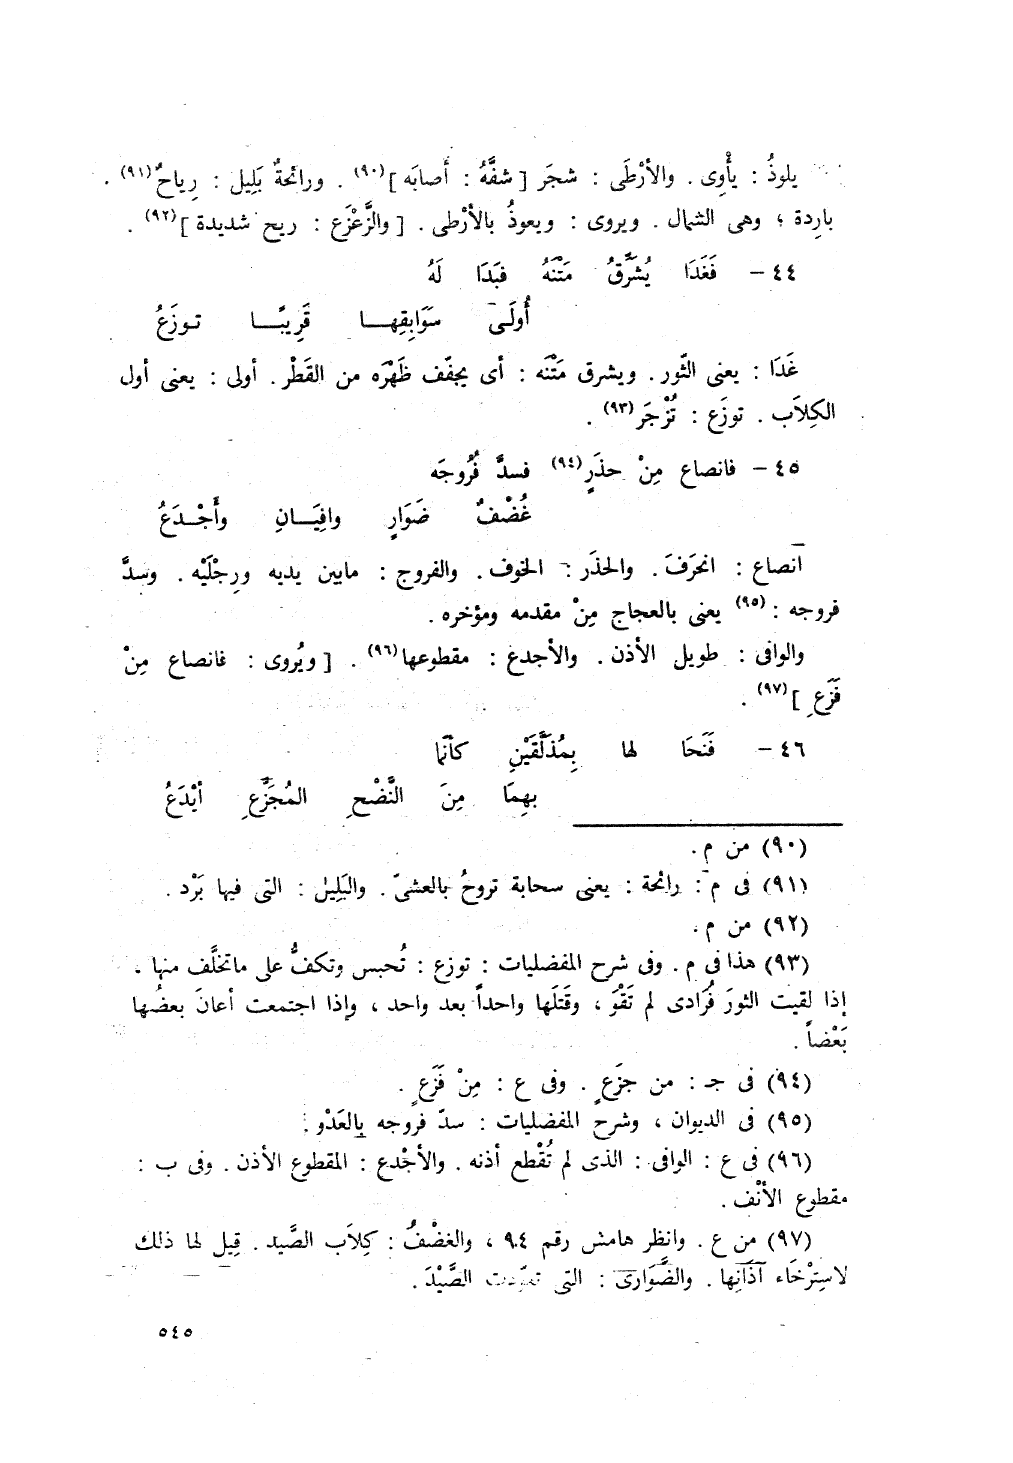 يلوذُ : يأْوِى . والأرْطَى : شجَر [ شفَّهُ : أصابَه ](٩٠) . ورائحةٌ بَلِيل : رِياحٌ(٩١)
بارِدة ؛ وهى الشمال . ويروى : ويعوذُ بالأرْطى . [ والزَّعْزَع : ريح شديدة ](٩٢) .
٤٤ - فَغَدَا يُشَرِّقُ مَتْنَهُ فَبَدَا لَهُ
أُولَى سَوَابِقِهـــا قَرِيبًـــا تـوزَعُ
غَدَا : يعنى الثّور . ويشرق مَتْنَه : أى يجفّف ظَهْرَه من القَطْر . أولى : يعنى أول
الكِلاَب . توزَع : تُزْجَر(٩٣) .
٤٥ - فانصاع مِنْ حذَرٍ(٩٤) فسدَّ فُرُوجَه
غُضْفٌ ضَوَارٍ وافِيَـــانِ وأَجْـدَعُ
انصاع : انحَرَفَ . والحذَر : الخوف . والفروج : مابين يديه ورِجْلَيْه . وسدَّ
فروجه :(٩٥) يعنى بالعجاج مِنْ مقدمه ومؤخره .
والوافى : طويل الأذن . والأجدع : مقطوعها(٩٦) . [ ويُروى : فانصاع مِنْ
فَزَعٍ ](٩٧) .
٤٦ - فَنَحَا لها بِمُذَلَّقَيْنِ كأنّما
بهِمَا مِنَ النَّضْحِ المُجَزَّعِ أيْدَعُ
(٩٠) من م .
(٩١) فى م : رائحة : يعنى سحابة تروحُ بالعشىّ . والبَلِيل : التى فيها بَرْد .
(٩٢) من م .
(٩٣) هذا فى م . وفى شرح المفضليات : توزع : تُحبس وتكفُّ على ماتخلَّف منها .
إذا لقيت الثورَ فُرَادى لم تَقْوَ ، وقَتَلَها واحداً بعد واحد ، وإذا اجتمعت أعانَ بعضُها
بَعْضاً .
(٩٤) فى جـ : من جزَعٍ . وفى ع : مِنْ فَزَعٍ .
(٩٥) فى الديوان ، وشرح المفضليات : سدّ فروجه بالعَدْو .
(٩٦) فى ع : الوافى : الذى لم تُقْطع أذنه . والأجْدع : المقطوع الأذن . وفى ب :
مقطوع الأنْف .
(٩٧) من ع . وانظر هامش رقم ٩٤ ، والغضْفُ : كِلاَب الصَّيد . قِيل لها ذلك
لاسِتِرْخَاء آذَانِها . والضَّوَارى : التى تعوّدت الصَّيْدَ .
٥٤٥